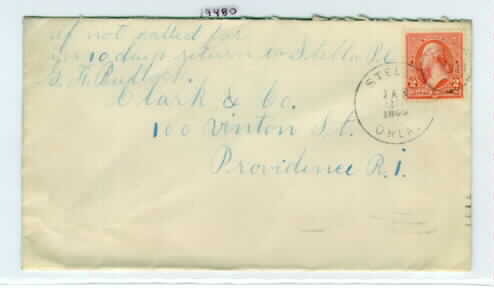 19480
if not called for
in 10 days return to Stella P.O.
Clark & Co.
100 Vinton St.
Providence R.I.
STELLA
JAN
OKLA.